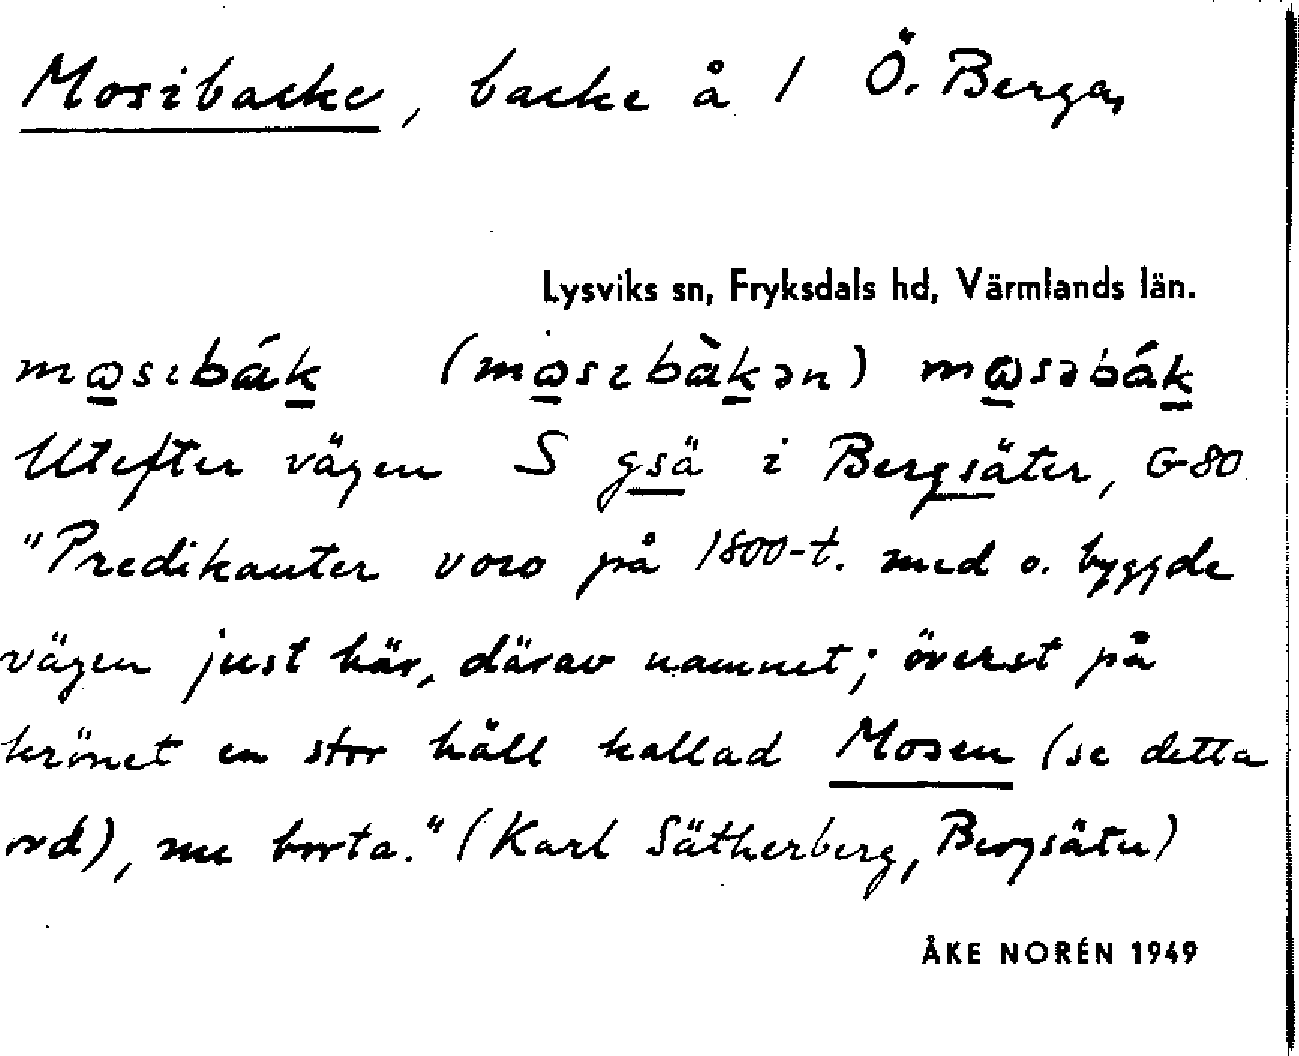 Mosibacke, backe å 1 Ö. Berga,
Lysviks sn, Fryksdals hd, Värmlands län.
mꞷsıbák (mꞷsıbàkən) mꞷsəbák
Utefter vägen S gsä i Bergsäter, G-80
"Predikanter voro på 1800-t. med o. byggde
vägen just här, därav namnet; överst på
krönet en stor häll kallad Mosen (se detta
ord), nu borta." (Karl Sätherberg, Bergsäter)
ÅKE NORÉN 1949